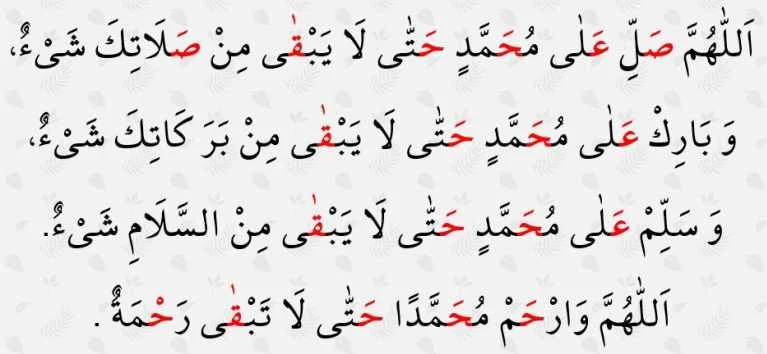 اَللّٰهُمَّ صَلِّ عَلٰى مُحَمَّدٍ حَتّٰى لَا يَبْقٰى مِنْ صَلَاتِكَ شَىْءٌ،
وَ بَارِكْ عَلٰى مُحَمَّدٍ حَتّٰى لَا يَبْقٰى مِنْ بَرَ كَاتِكَ شَىْءٌ،
وَ سَلِّمْ عَلٰى مُحَمَّدٍ حَتّٰى لَا يَبْقٰى مِنْ السَّلَامِ شَىْءٌ.
اَللّٰهُمَّ وَارْحَمْ مُحَمَّدًا حَتّٰى لَا تَبْقٰى رَحْمَةٌ .